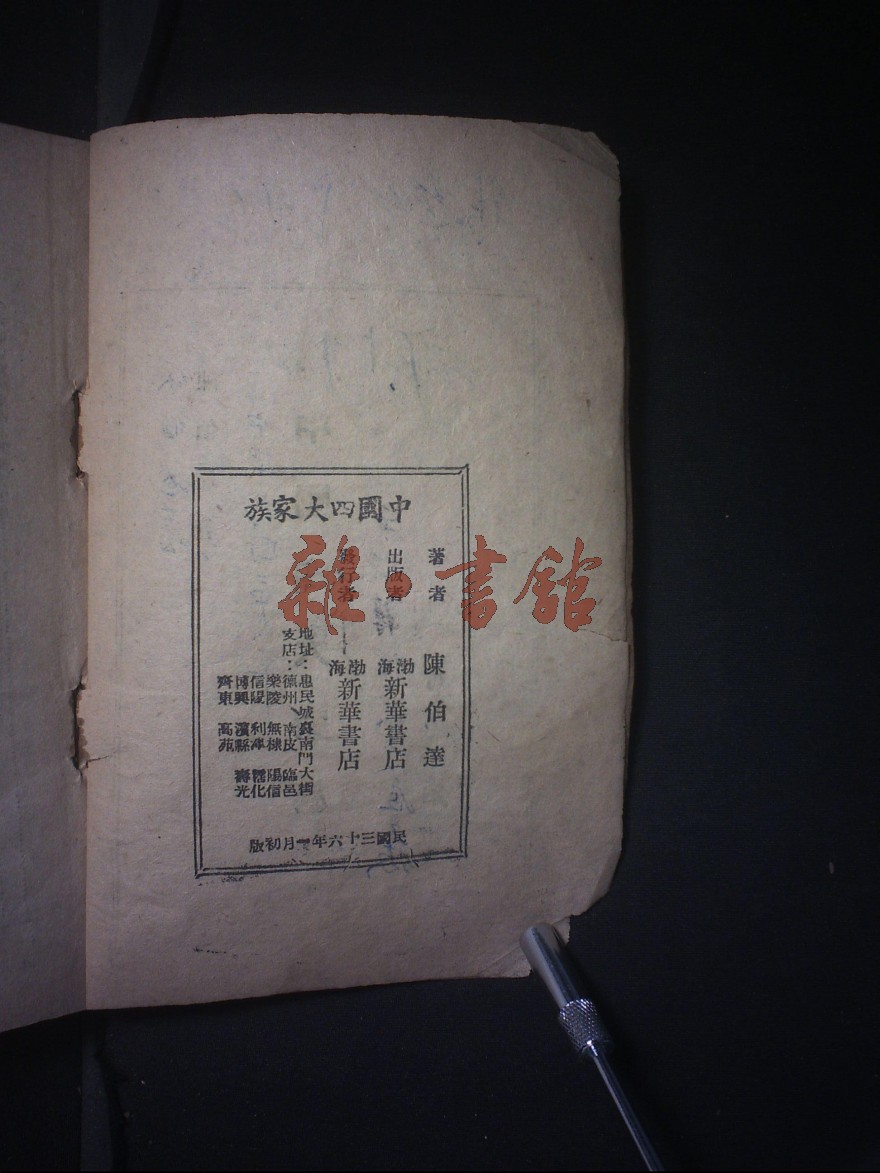 中國四大家族
著者 陳伯達
出版者 渤海新華書店
發行者 渤海新華書店
地址：惠民城裏南門大街
支店：德州 南皮 臨邑
樂陵 無棣 陽信
信陽 利津 霑化
博興 濱縣 壽光
齊東 高苑
民國三十六年一月初版
雜·書館